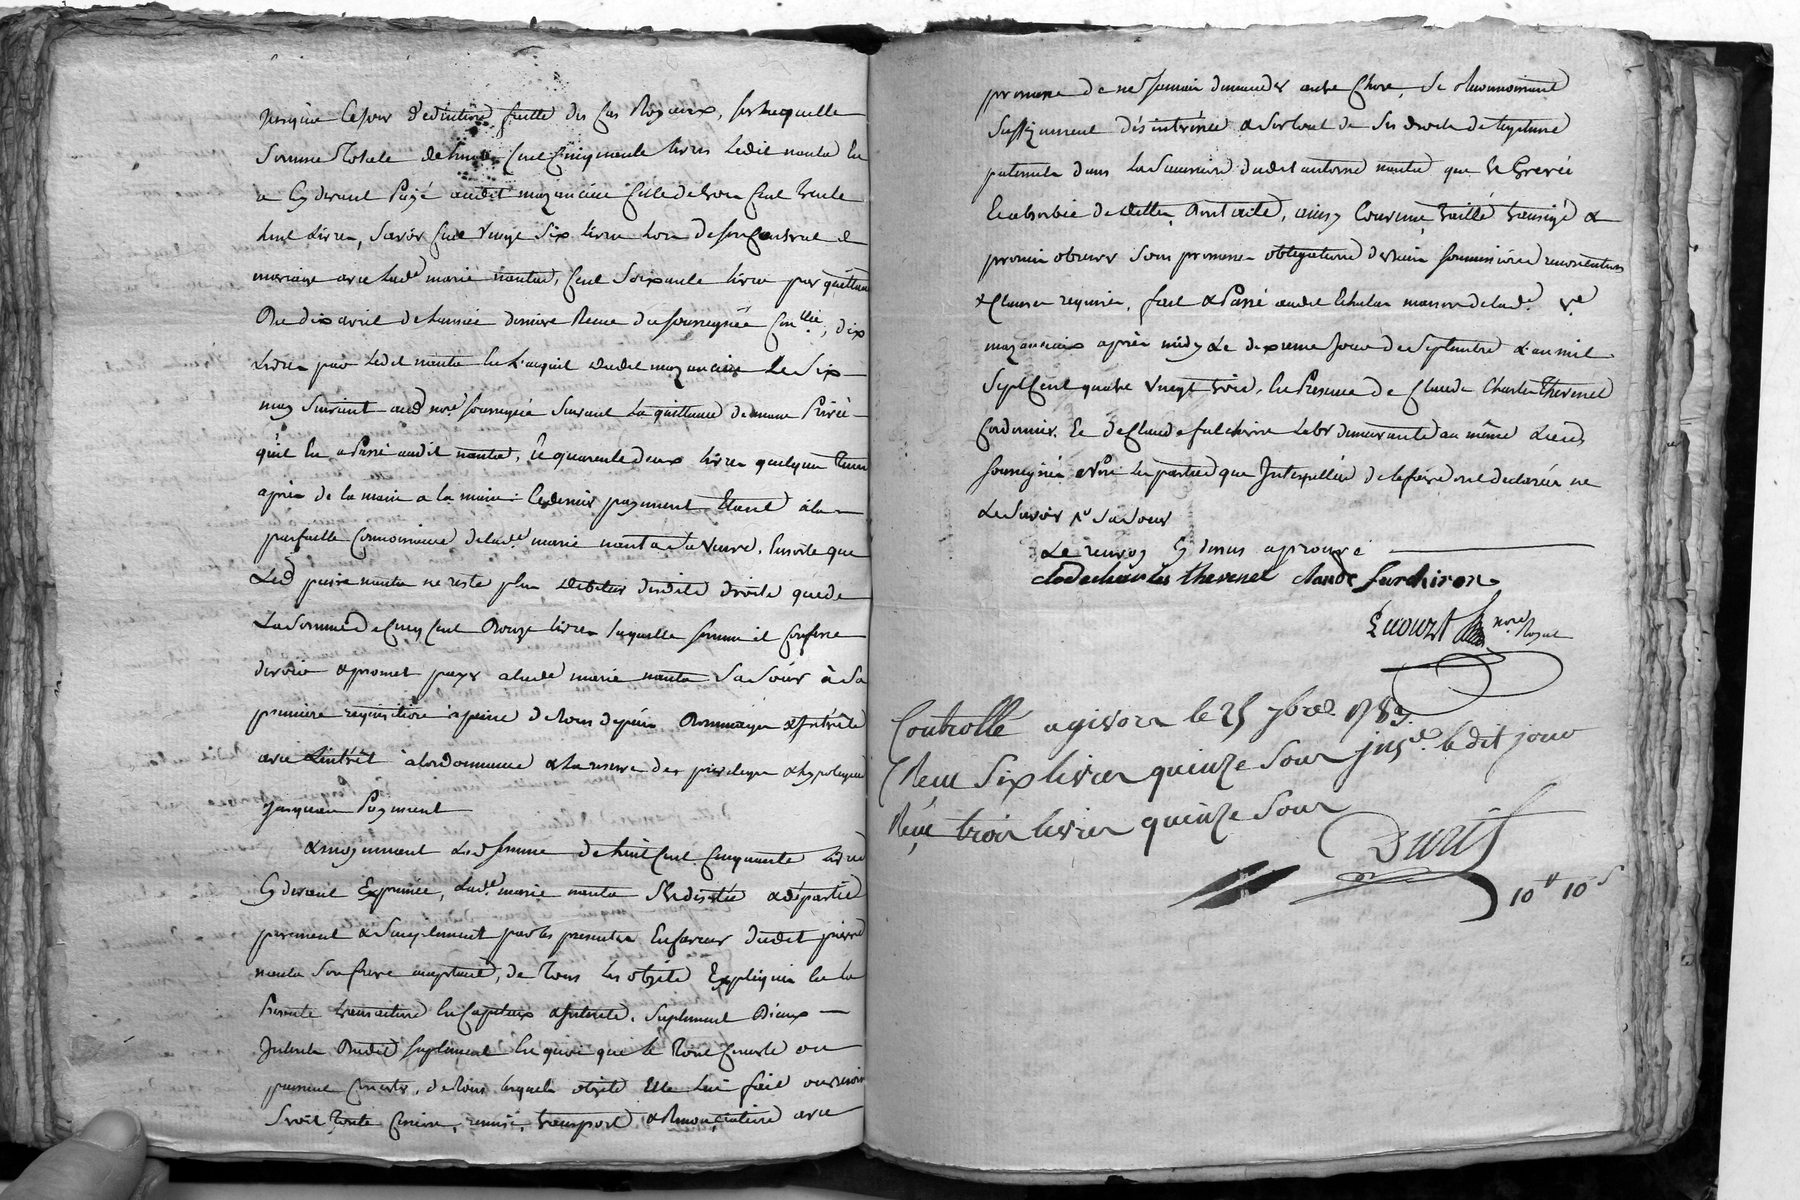 jusqu'a ce jour deduction faitte des cas Royaux, sur laquelle
somme Totale de huit Cent Cinquante livres ledit nanta En
a Cy devant Payé audit mazancieux celle de trois Cent trente
huit Livres, savoir Cent vingt Six livres lors de son Contrat de
mariage avec lade marie nanta, Cent Soixante livres par quittance
du dix avril de l'année derniere Recue du soussignée, dix
Livres par Ledit nanta En L'acquit dudit mazancieux Le Six
may suivant aud nore soussigné suivant la quittance de main Privée
qu'il En a Passé audit nanta, Et quarante deux livres quelque tems
après de la main a la main: Ce dernier payment Etant à la
parfaitte Connoissance de lade marie nanta sa veuve. Ensorte que
Led pierre nanta ne reste plus debiteur desdits droits que de
La Somme de Cinq Cent Douze livres laquelle somme il Confesse
devoir & promet payer a lade marie nanta Sa Sœur à Sa
premiere requisition à peine de tous depens Dommages & Interets
avec L'intérêt à l'ordonnance & la reserve des privileges & hypoteques
jusqu'au Payment
& moyennant lad somme de huit Cent Cinquante Livres
Cy devant Exprimée, lade marie nanta S'Est desistée & departie
purement & Simplement par les presentes En faveur dudit pierre
nanta Son frere acceptant, de Tous les objets Expliqués En la
Presente transaction En Capitaux & Interets. Suplement Dieux
Interets Dudit suplement En quoi que le Tout Consiste ou
puissent Consister, de tous lesquels objets Elle lui fait
Droit Toute Cession, remise, transport & Renonciation avec
promesse de ne Jamais demander autre Chose Se Reconnoissant
Suffizamment désintéressée & Sur tout de Ses droits de legitime
paternels dans La Succession dudit antoine nanta que
Et absorbée de dettes, ainsy Convenu traitté transigé &
promis observer Sous promesses obligations de biens soumissions renonciations
& Clauses requises, fait & Passé audit Echalas maison de lade ve
mazancieux après midy Le dixieme jour de Septembre L'an mil
Sept Cent quatre vingt trois. En Presence de Claude Charles Thevenet
Cordonnier. Et de Claude furchiron Labr demeurants au même Lieu
soussignés & Non les parties que Interpellées de le faire ont declarées ne
Le Savoir
Le renvoy Cy dessus aprouvé
clode charles thevenet claude furchiron
nore Royal
Controllé a givors le 25 7bre 1783.
Reçu Six livres quinze Sous jnsé. le dit jour
Reçu trois livres quinze Sous
10tt 10s